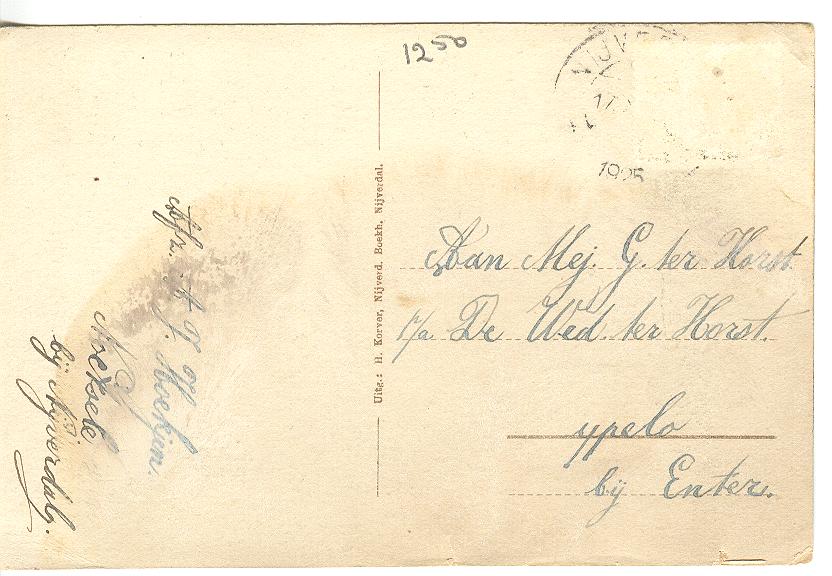 1250
NIJV
1925
Afz. A J. Hoekjen.
bij Nijverdal.
Uitg.: H. Korver, Nijverd. Boekh. Nijverdal.
Aan Mej. G. ter Horst
p/a De Wed. ter Horst.
ypelo
bij Enter.